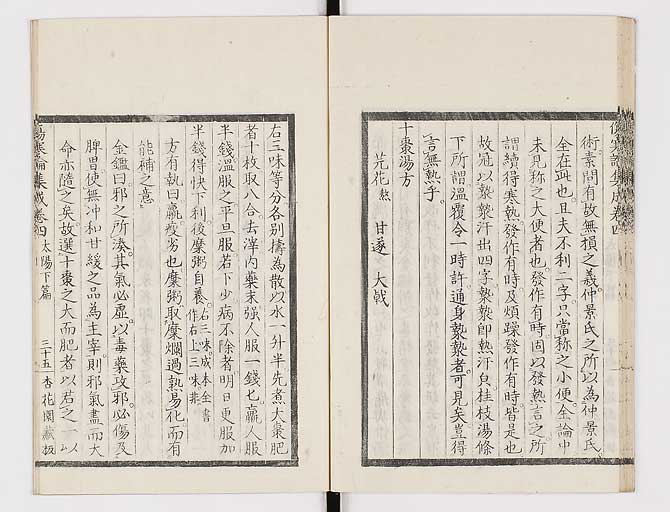 傷寒論集成卷四
術素問有故無損之義仲景氏之所以為仲景氏
全在此也且夫不利二字只當称之小便全論中
未見称之大便者也發作有時固以發熱言之所
謂續得寒熱發作有時及煩躁發作有時皆是也
故冠以漐漐汗出四字漐漐即熱汗皃桂枝湯條
下所謂溫覆令一時許通身漐漐者可見矣豈得
言無熱乎
十棗湯方
芫花熬 甘遂 大戟
右三味等分各別擣為散以水一升半先煮大棗肥
者十枚取八合去滓內藥末强人服一錢匕羸人服
半錢溫服之平旦服若下少病不除者明日更服加
半錢得快下利後糜粥自養右三味成本全書作右上三味非
方有執曰羸瘦劣也糜粥取糜爛過熟易化而有
能補之意
金鑑曰邪之所湊其氣必虛以毒藥攻邪必傷及
脾胃使無冲和甘緩之品為主宰則邪氣盡而大
命亦隨之矣故選十棗之大而肥者以君之一以
傷寒論集成卷四 太陽下篇 三十五 杏花園藏板